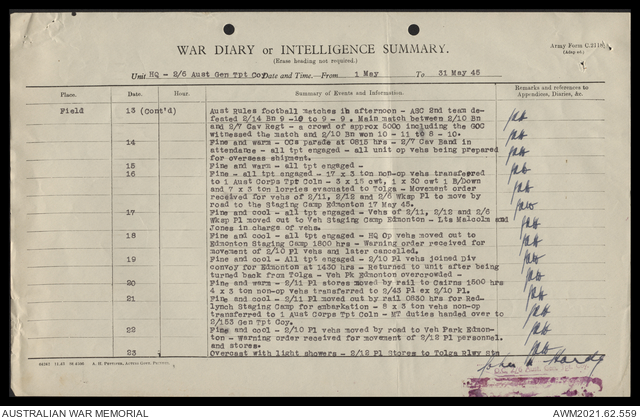 WAR DIARY or INTELLIGENCE SUMMARY.
(Erase heading not required.)
Army Form C.2118.
Unit HQ - 2/6 Aust Gen Tpt Coy Date and Time.—From 1 May To 31 May 45
Place. Date. Hour. Summary of Events and Information. Remarks and references to Appendices, Diaries, &c.
Field 13 (Cont'd) Aust Rules football matches in afternoon - ASC 2nd team de-
feated 2/14 Bn 9 -10 to 9 - 9. Main match between 2/10 Bn
and 2/7 Cav Regt - a crowd of approx 5000 including the GOC
witnessed the match and 2/10 Bn won 10 - 11 to 8 - 10.
14 Fine and warm - OCs parade at 0815 hrs - 2/7 Cav Band in
attendance - all tpt engaged - all unit op vehs being prepared
for overseas shipment.
15 Fine and warm - all tpt engaged -
16 Fine - all tpt engaged - 17 x 3 ton non-op vehs transferred
to 1 Aust Corps Tpt Coln - 3 x 15 cwt, 1 x 30 cwt 1 B/Down
and 7 x 3 ton lorries evacuated to Tolga - Movement order
received for vehs of 2/11, 2/12 and 2/6 Wksp Pl to move by
road to the Staging Camp Edmonton 17 May 45.
17 Fine and cool - all tpt engaged - Vehs of 2/11, 2/12 and 2/6
Wksp Pl moved out to Veh Staging Camp Edmonton - Lts Malcolm and
Jones in charge of vehs.
18 Fine and cool - all tpt engaged - HQ Op vehs moved out to
Edmonton Staging Camp 1800 hrs - Warning order received for
movement of 2/10 Pl vehs and later cancelled.
19 Fine and cool - All tpt engaged - 2/10 Pl vehs joined Div
convoy for Edmonton at 1430 hrs - Returned to unit after being
turned back from Tolga - Veh Pk Edmonton overcrowded -
20 Fine and warm - 2/11 Pl stores moved by rail to Cairns 1500 hrs
4 x 3 ton non-op vehs transferred to 2/43 Pl ex 2/10 Pl.
21 Fine and cool - 2/11 Pl moved out by rail 0830 hrs for Red-
lynch Staging Camp for embarkation - 8 x 3 ton vehs non-op
transferred to 1 Aust Corps Tpt Coln - MT duties handed over to
2/153 Gen Tpt Coy.
22 Fine and cool - 2/10 Pl vehs moved by road to Veh Park Edmon-
ton - warning order received for movement of 2/12 Pl personnel
and stores.
23 Overcast with light showers - 2/12 Pl Stores to Tolga Rlwy Stn
AUSTRALIAN WAR MEMORIAL
AWM2021.62.559